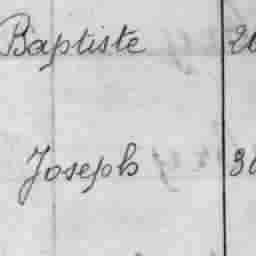 Baptiste
Joseph